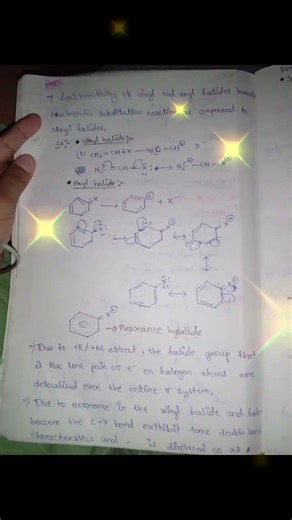 → Low reactivity of vinyl and aryl halides towards
nucleophilic substitution reaction as compared to
alkyl halides.
• Vinyl halide :-
(i) CH₂ = CH + X → H₂C = CH⊕ X⁻
H₂C = CH – X : ⟷ H₂C⊖ – CH = X⊕
• Aryl halide :-
X → ⊕ + X⁻
→ Resonance hybride
⇒ Due to +R/+M effect, the halide group that
is the lone pair of e⁻ on halogen atom are
delocalised over the entire π system.
⇒ Due to resonance in the vinyl halide and
benzene the C–X bond exhibit some double bond
characteristics and is displaced so as